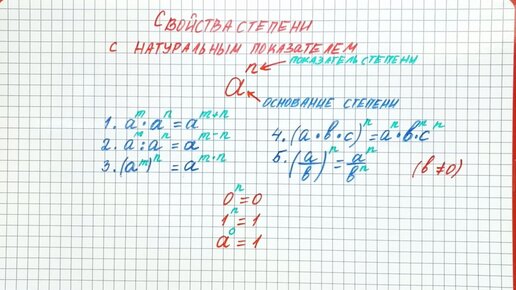 Свойства степени
с натуральным показателем
aⁿ показатель степени
основание степени
1. aᵐ · aⁿ = aᵐ⁺ⁿ
2. aᵐ : aⁿ = aᵐ⁻ⁿ
3. (aᵐ)ⁿ = aᵐ·ⁿ
4. (a · b · c)ⁿ = aⁿ · bⁿ · cⁿ
5. (a/b)ⁿ = aⁿ/bⁿ (b ≠ 0)
0ⁿ = 0
1ⁿ = 1
a⁰ = 1